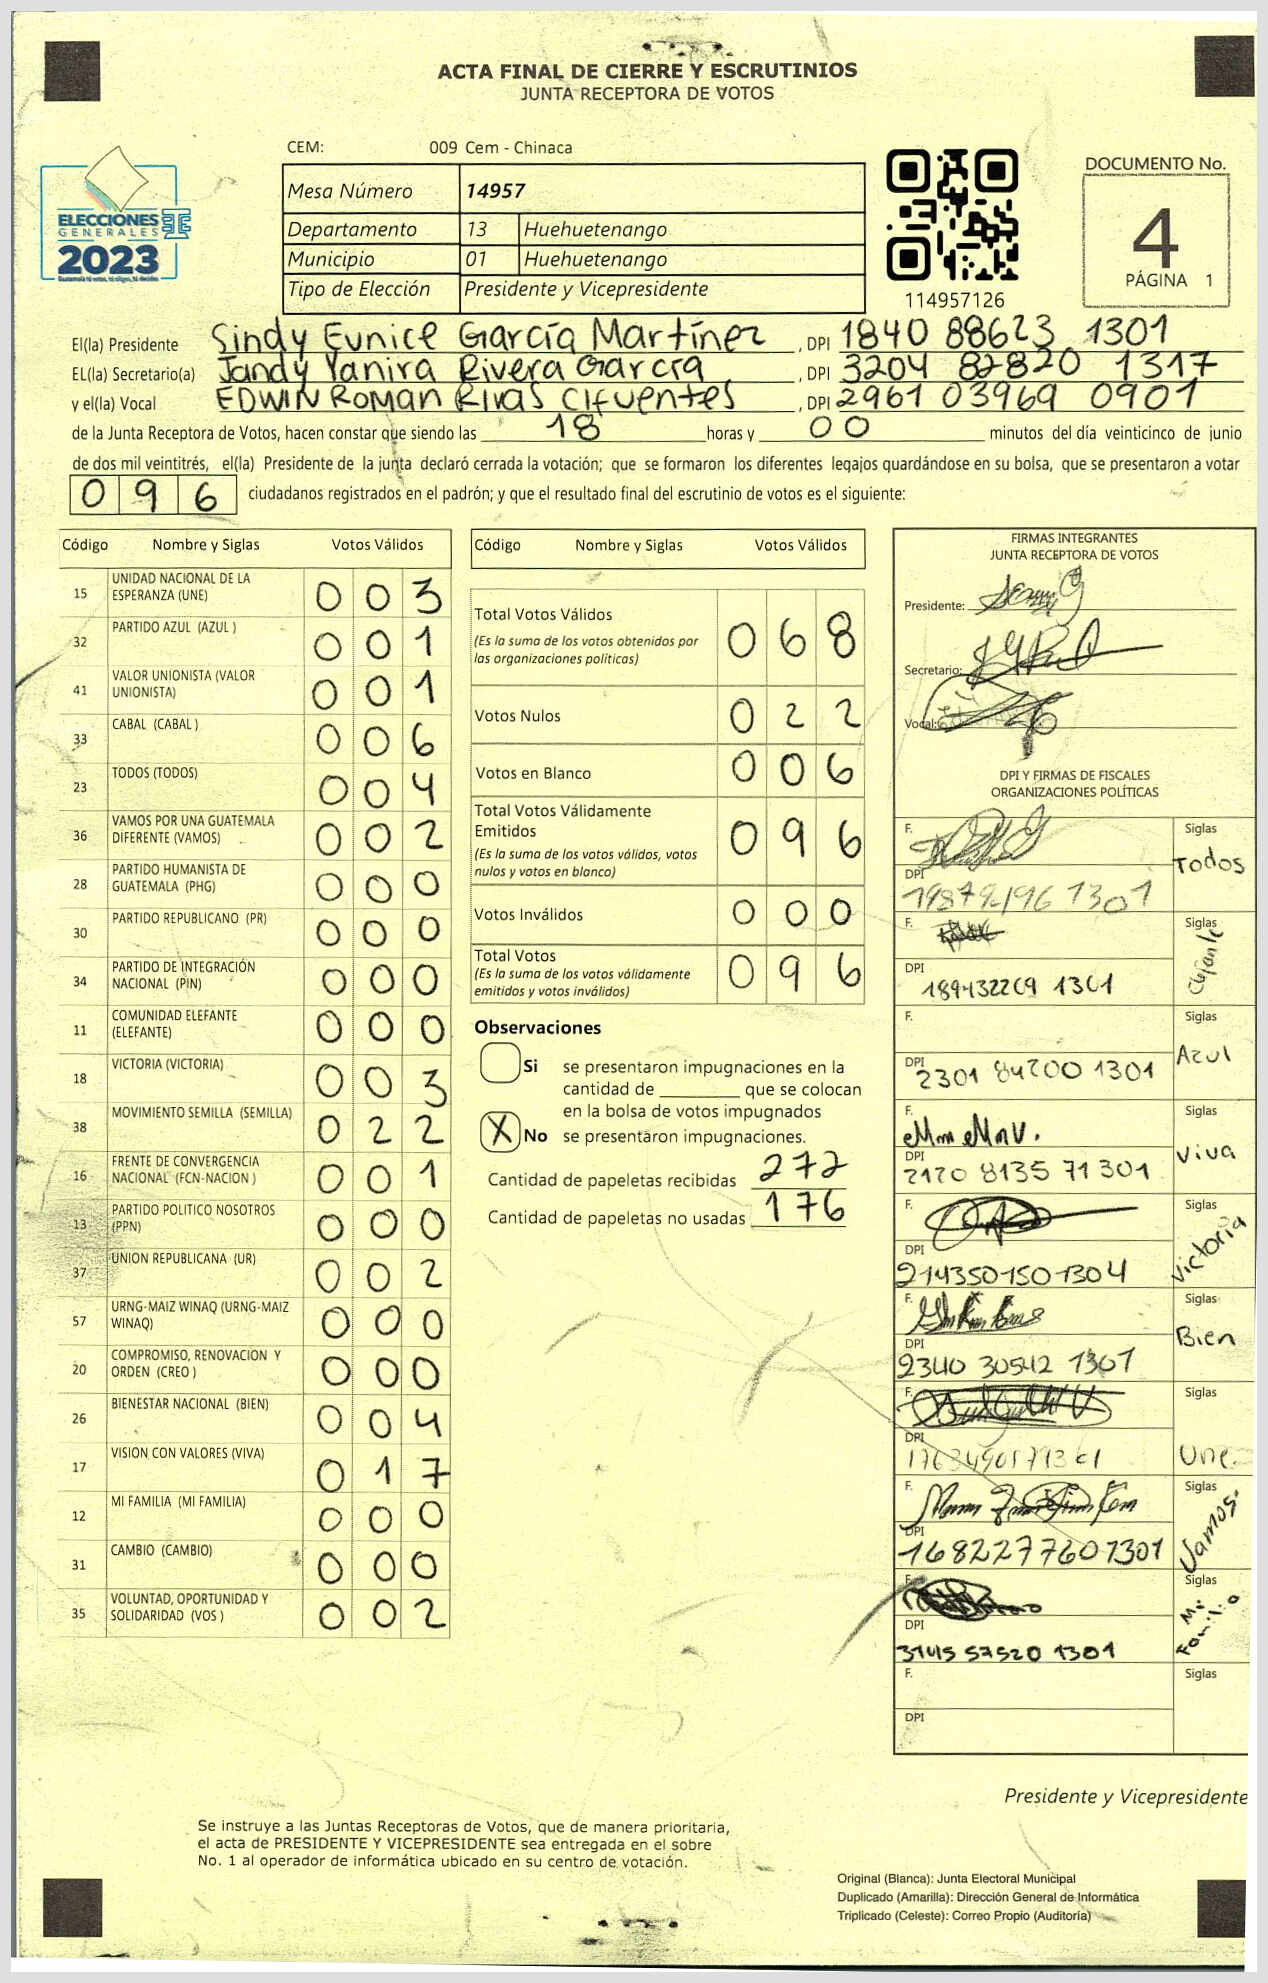 ACTA FINAL DE CIERRE Y ESCRUTINIOS
JUNTA RECEPTORA DE VOTOS
CEM: 009 Cem - Chinaca
ELECCIONES
GENERALES
2023
Mesa Número 14957
Departamento 13 Huehuetenango
Municipio 01 Huehuetenango
Tipo de Elección Presidente y Vicepresidente
114957126
DOCUMENTO No.
4
PÁGINA 1
El(la) Presidente Sindy Eunice García Martínez , DPI 1840 88623 1301
EL(la) Secretario(a) Jandy Yanira Rivera García , DPI 3204 82820 1317
y el(la) Vocal EDWIN ROMAN RIVAS CIFUENTES , DPI 2961 03969 0901
de la Junta Receptora de Votos, hacen constar que siendo las 18 horas y 00 minutos del día veinticinco de junio
de dos mil veintitrés, el(la) Presidente de la junta declaró cerrada la votación; que se formaron los diferentes legajos guardándose en su bolsa, que se presentaron a votar
096 ciudadanos registrados en el padrón; y que el resultado final del escrutinio de votos es el siguiente:
Código Nombre y Siglas Votos Válidos
15 UNIDAD NACIONAL DE LA ESPERANZA (UNE) 003
32 PARTIDO AZUL (AZUL ) 001
41 VALOR UNIONISTA (VALOR UNIONISTA) 001
33 CABAL (CABAL ) 006
23 TODOS (TODOS) 004
36 VAMOS POR UNA GUATEMALA DIFERENTE (VAMOS) 002
28 PARTIDO HUMANISTA DE GUATEMALA (PHG) 000
30 PARTIDO REPUBLICANO (PR) 000
34 PARTIDO DE INTEGRACIÓN NACIONAL (PIN) 000
11 COMUNIDAD ELEFANTE (ELEFANTE) 000
18 VICTORIA (VICTORIA) 003
38 MOVIMIENTO SEMILLA (SEMILLA) 022
16 FRENTE DE CONVERGENCIA NACIONAL (FCN-NACION ) 001
13 PARTIDO POLITICO NOSOTROS (PPN) 000
37 UNION REPUBLICANA (UR) 002
57 URNG-MAIZ WINAQ (URNG-MAIZ WINAQ) 000
20 COMPROMISO, RENOVACION Y ORDEN (CREO ) 000
26 BIENESTAR NACIONAL (BIEN) 004
17 VISION CON VALORES (VIVA) 017
12 MI FAMILIA (MI FAMILIA) 000
31 CAMBIO (CAMBIO) 000
35 VOLUNTAD, OPORTUNIDAD Y SOLIDARIDAD (VOS ) 002
Código Nombre y Siglas Votos Válidos
Total Votos Válidos 068
(Es la suma de los votos obtenidos por
las organizaciones políticas)
Votos Nulos 022
Votos en Blanco 006
Total Votos Válidamente
Emitidos 096
(Es la suma de los votos válidos, votos
nulos y votos en blanco)
Votos Inválidos 000
Total Votos 096
(Es la suma de los votos válidamente
emitidos y votos inválidos)
Observaciones
Si se presentaron impugnaciones en la
cantidad de ________ que se colocan
en la bolsa de votos impugnados
X No se presentaron impugnaciones.
Cantidad de papeletas recibidas 272
Cantidad de papeletas no usadas 176
FIRMAS INTEGRANTES
JUNTA RECEPTORA DE VOTOS
Presidente:
Secretario:
Vocal:
DPI Y FIRMAS DE FISCALES
ORGANIZACIONES POLÍTICAS
F. Siglas Todos
DPI
F. Siglas
DPI
F. Siglas Azul
DPI 2301 84200 1301
F. Siglas Viva
DPI 2120 8135 71301
F. Siglas Victoria
DPI 2143501501304
F. Siglas Bien
DPI 2340 30542 1301
F. Siglas Une
DPI
F. Siglas Vamos
DPI 1682277601301
F. Siglas Mi Familia
DPI 3145 57520 1301
F. Siglas
DPI
Presidente y Vicepresidente
Se instruye a las Juntas Receptoras de Votos, que de manera prioritaria,
el acta de PRESIDENTE Y VICEPRESIDENTE sea entregada en el sobre
No. 1 al operador de informática ubicado en su centro de votación.
Original (Blanca): Junta Electoral Municipal
Duplicado (Amarilla): Dirección General de Informática
Triplicado (Celeste): Correo Propio (Auditoría)